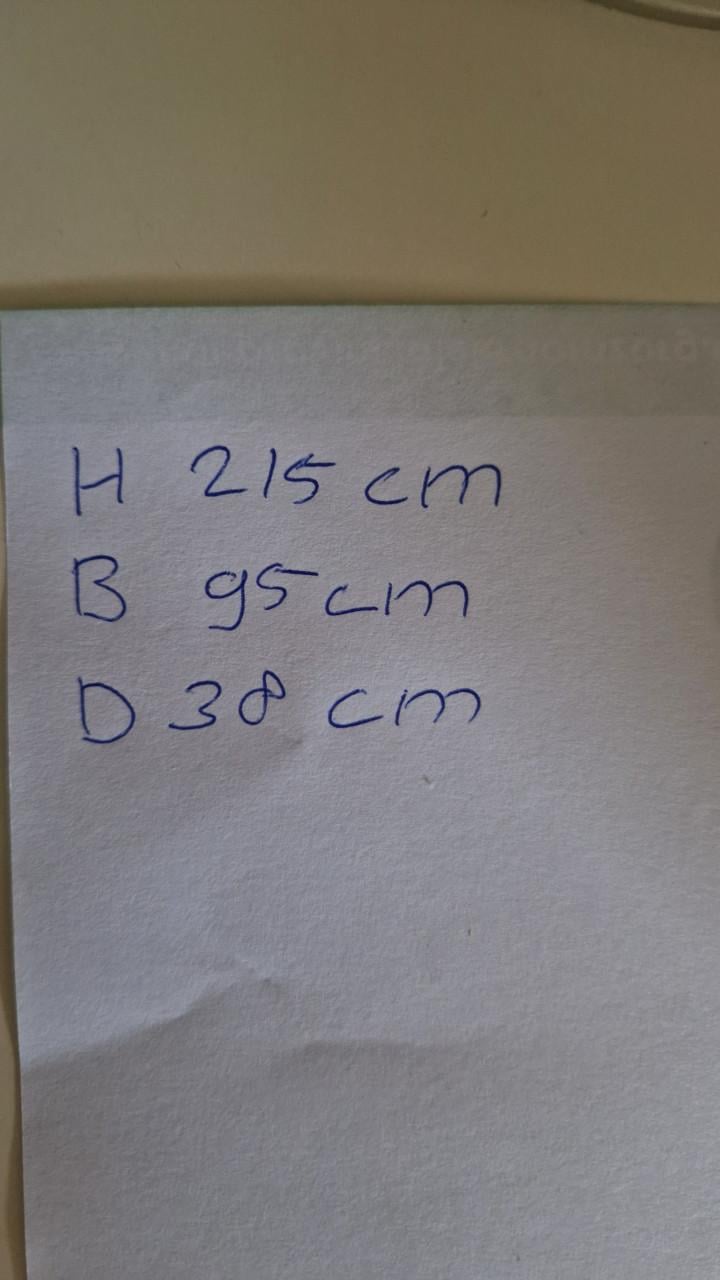 H 215 cm
B 95 cm
D 38 cm